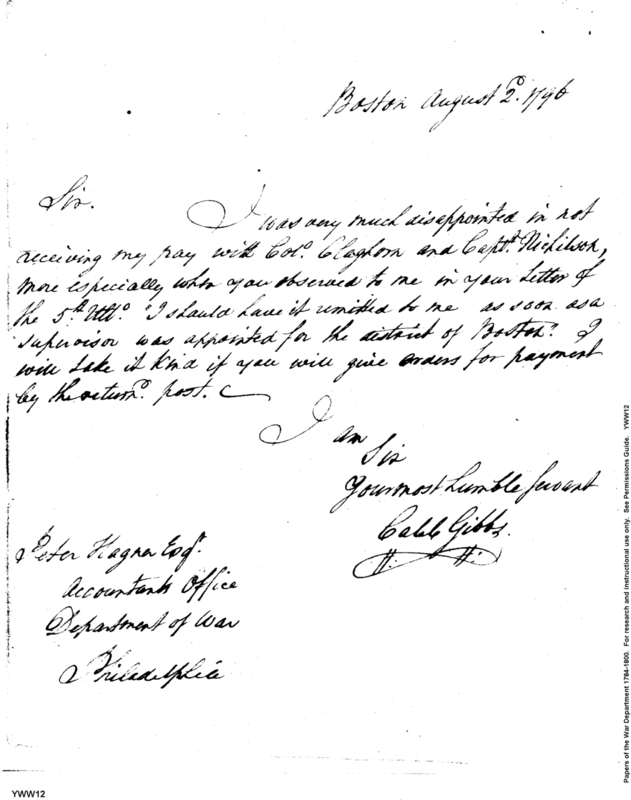 Boston August 2d. 1796
Sir. I was very much disappointed in not
receiving my pay with Colo. Claghorn and Captn. Nichilson,
more especially when you observed to me in your Letter of
the 5th. Ulto. "I should have it remitted to me as soon as a
supervisor was appointed for the district of Boston". I
will take it kind if you will give orders for payment
by the return. post.
I am
Sir
Your most humble Servant
Caleb Gibbs.
Peter Hagner Esqr.
Accountants Office
Department of War
Philadelphia
YWW12
Papers of the War Department 1784-1800. For research and instructional use only. See Permissions Guide. YWW12